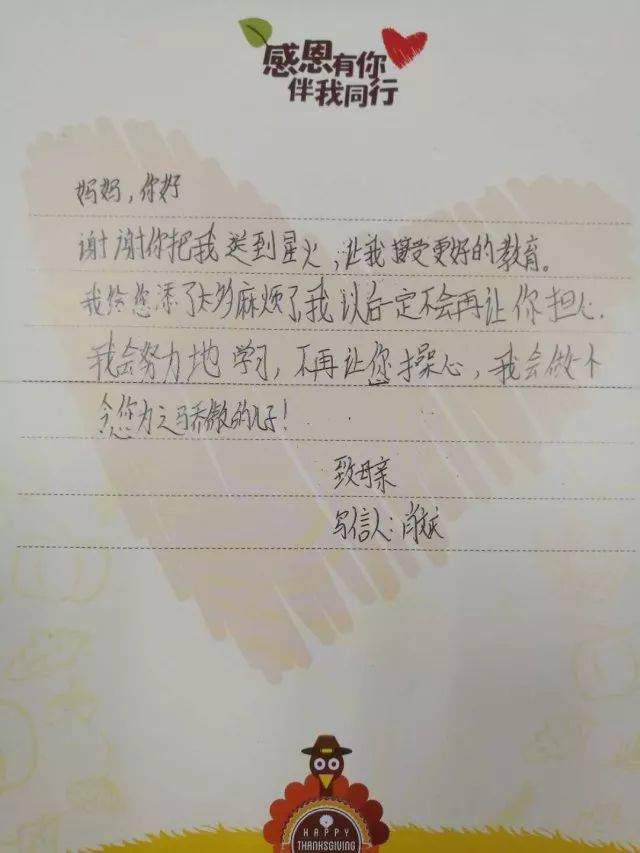 感恩有你
伴我同行
妈妈,你好
谢谢你把我送到星火,让我接受更好的教育。
我给您添了太多麻烦了我以后一定不会再让你担心.
我会努力地学习,不再让您操心,我会做个
令您为之骄傲的儿子!
致母亲
写信人:肖斌
HAPPY
THANKSGIVING